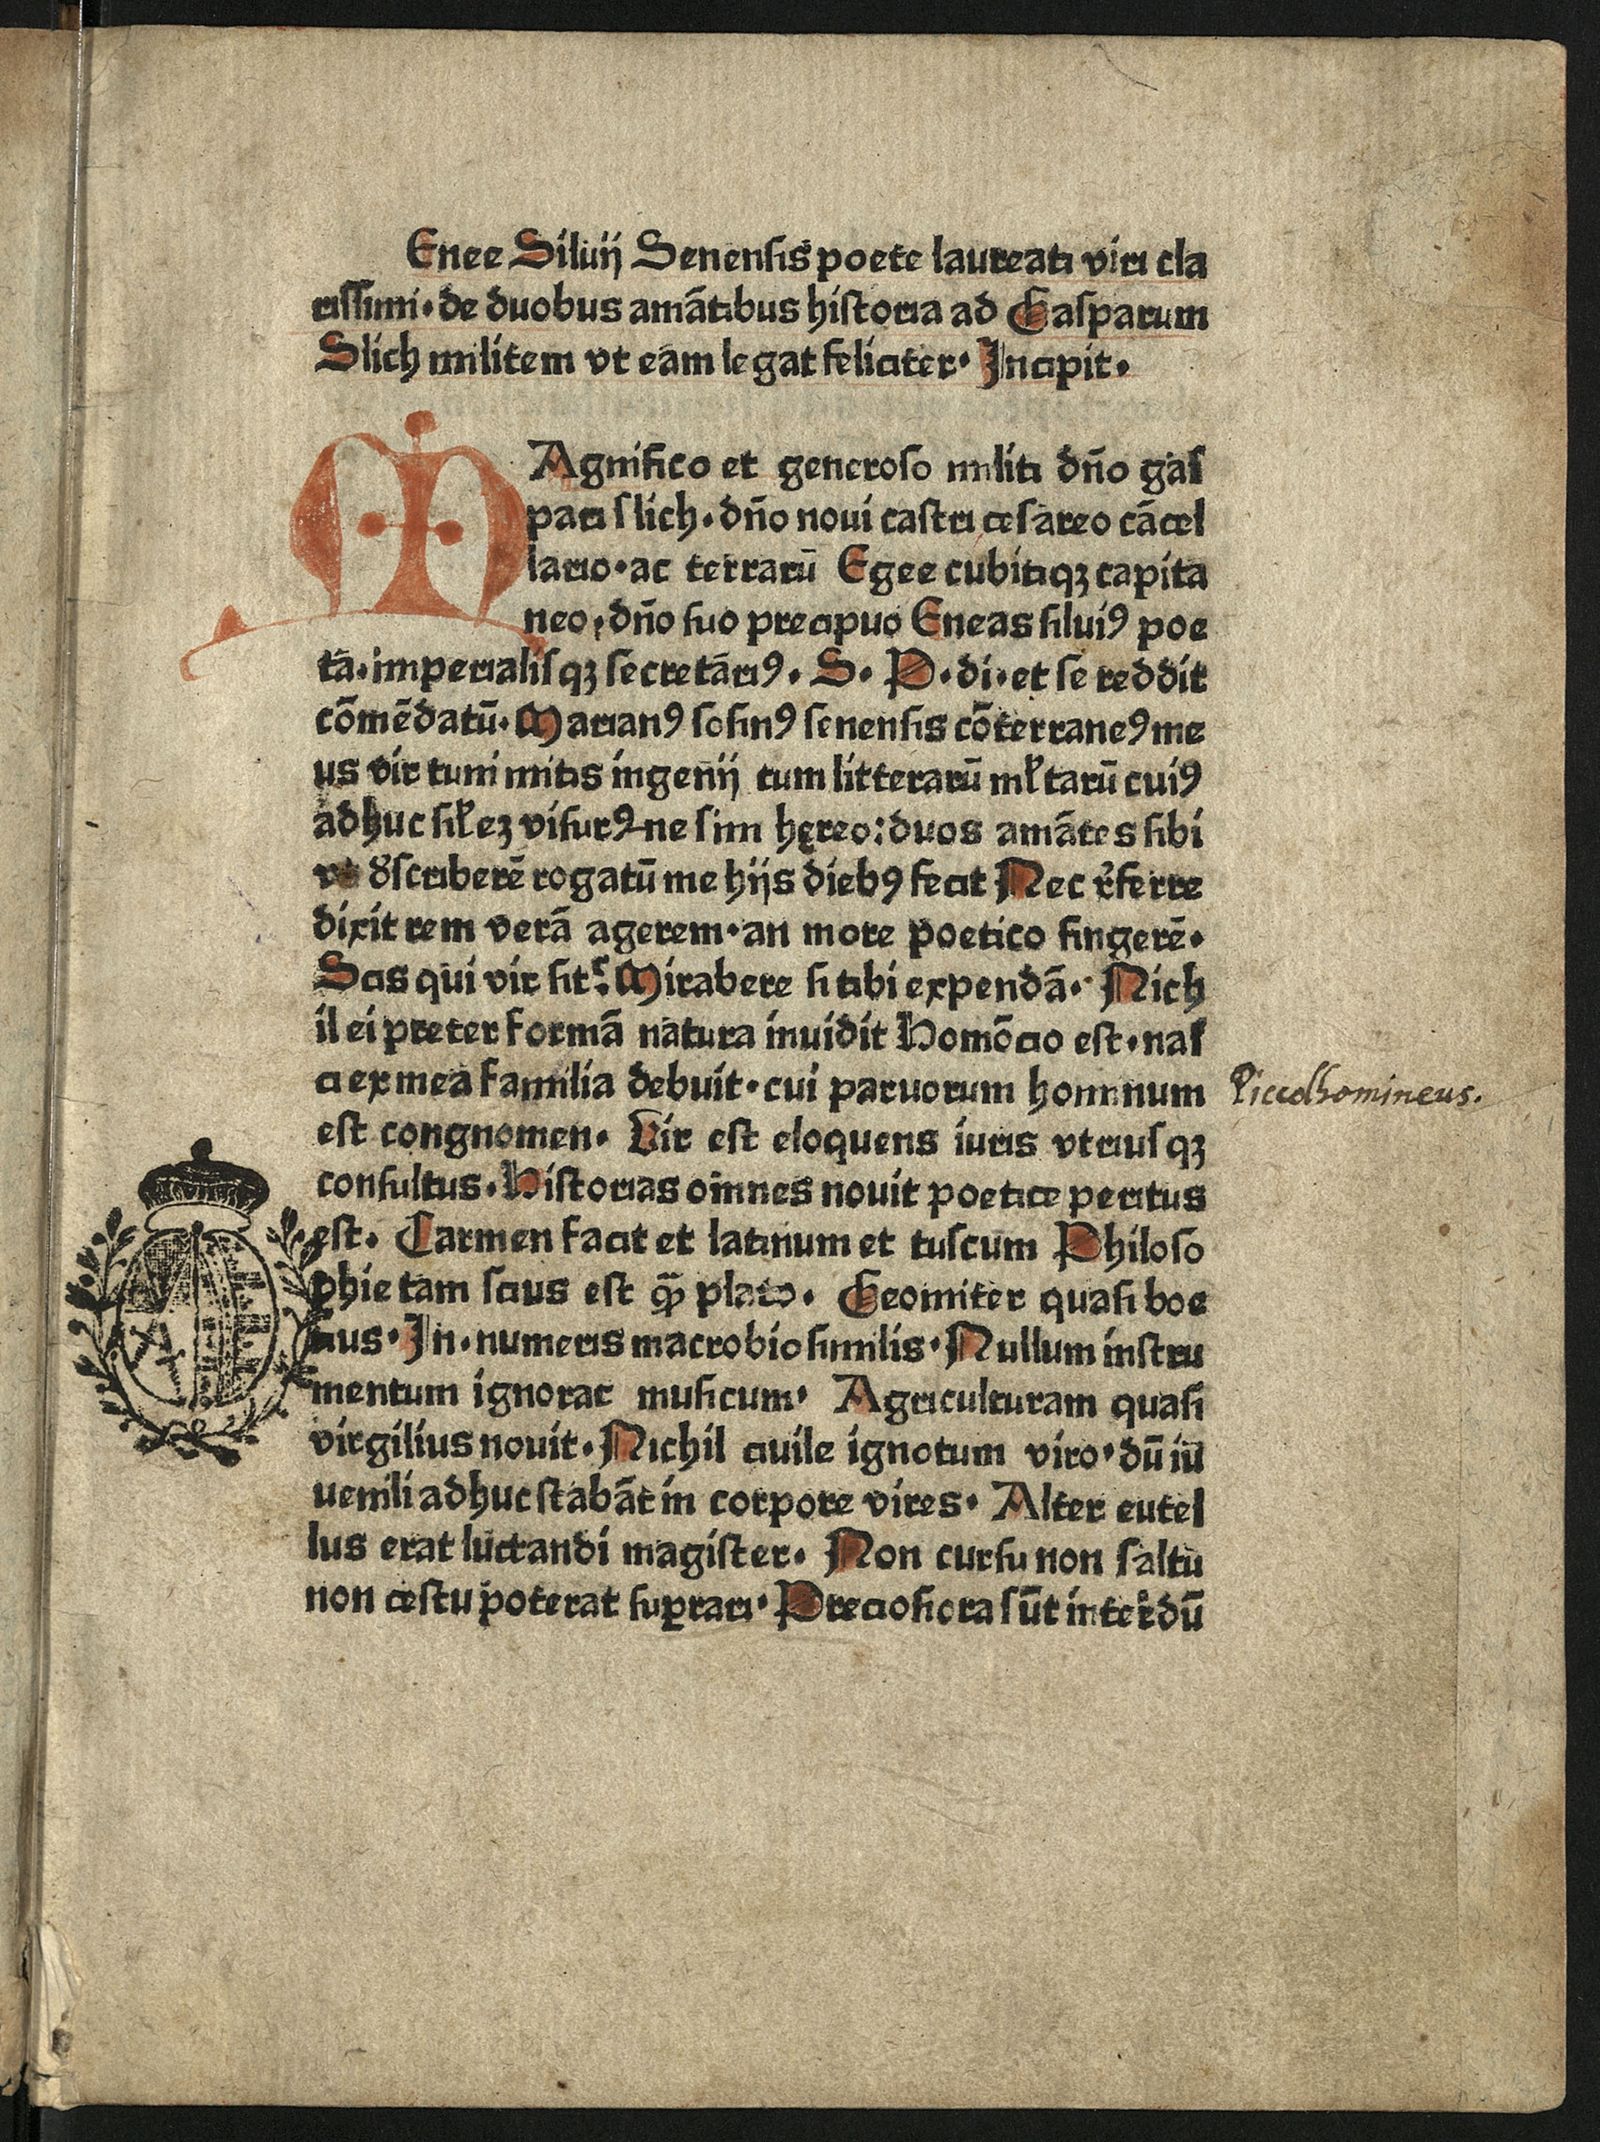 Enee Siluij Senensis poete laureati viri cla
rissimi. de duobus amātibus historia ad Gasparum
Slich militem vt eam legat feliciter. Incipit.
MAgnifico et generoso militi dn̄o gas
pari slich. dn̄o noui castri cesareo cācel
lario. ac terrarū Egee cubitiqꝫ capita
neo, dn̄o suo precipuo Eneas siluiꝰ poe
ta. imperialisqꝫ secretariꝰ. S. P. di. et se reddit
cōmēdatū. Marianꝰ sosinꝰ senensis cōterraneꝰ me
us vir tum mitis ingenij tum litterarū ml̓tarū cuiꝰ
adhuc sil̓eꝫ visurꝰ ne sim hęreo: duos amātes sibi
vt dscriberē rogatū me hijs diebꝰ fecit Nec r̄ferre
dixit rem verā agerem. an more poetico fingerē.
Scis qui vir sit: Mirabere si tibi expendā. Nich
il ei preter formā natura inuidit Homōcio est. nas
ci ex mea familia debuit. cui paruorum hominum
Piccolhomineus.
est congnomen. Vir est eloquens iuris vtriusqꝫ
consultus. Historias omnes nouit poetice peritus
est. Carmen facit et latinum et tuscum Philoso
phie tam scius est qꝫ̄ plato. Geomiter quasi boe
nus. In. numeris macrobio similis. Nullum instru
mentum ignorat musicum. Agriculturam quasi
virgilius nouit. Nichil ciuile ignotum viro. dū iu
uenili adhuc stabāt in corpore vires. Alter eutel
lus erat luctandi magister. Non cursu non saltu
non cestu poterat suꝑari. Preciosiora sūt interdū